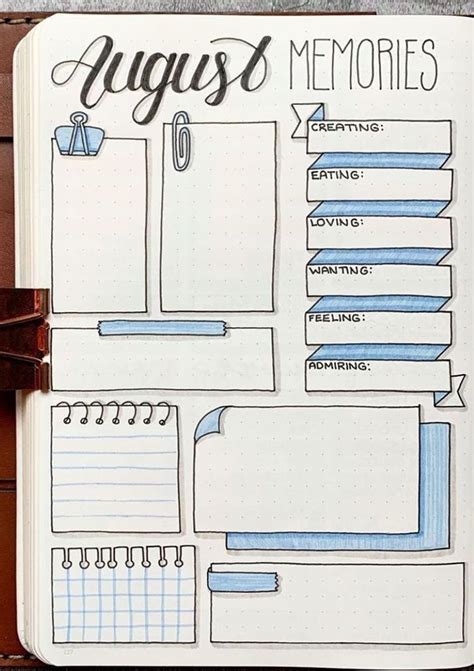 August MEMORIES
CREATING:
EATING:
LOVING:
WANTING:
FEELING:
ADMIRING: